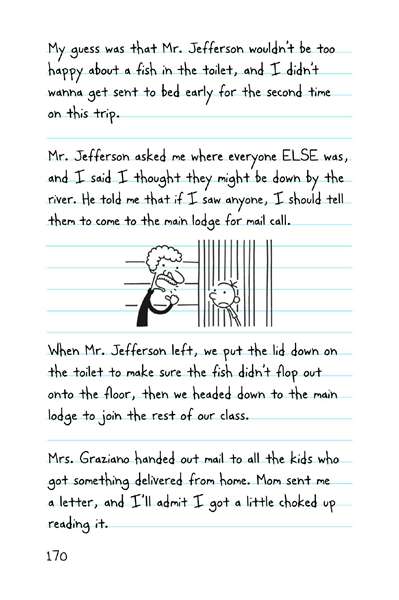 My guess was that Mr. Jefferson wouldn't be too
happy about a fish in the toilet, and I didn't
wanna get sent to bed early for the second time
on this trip.
Mr. Jefferson asked me where everyone ELSE was,
and I said I thought they might be down by the
river. He told me that if I saw anyone, I should tell
them to come to the main lodge for mail call.
When Mr. Jefferson left, we put the lid down on
the toilet to make sure the fish didn't flop out
onto the floor, then we headed down to the main
lodge to join the rest of our class.
Mrs. Graziano handed out mail to all the kids who
got something delivered from home. Mom sent me
a letter, and I'll admit I got a little choked up
reading it.
170